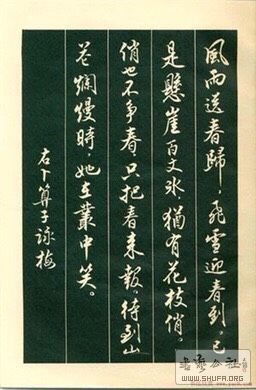 風雨送春歸，飛雪迎春到。已
是懸崖百丈冰，猶有花枝俏。
俏也不争春，只把春来報。待到山
花爛熳時，她在叢中笑。
右卜算子詠梅
書法公社
WWW.SHUFA.ORG